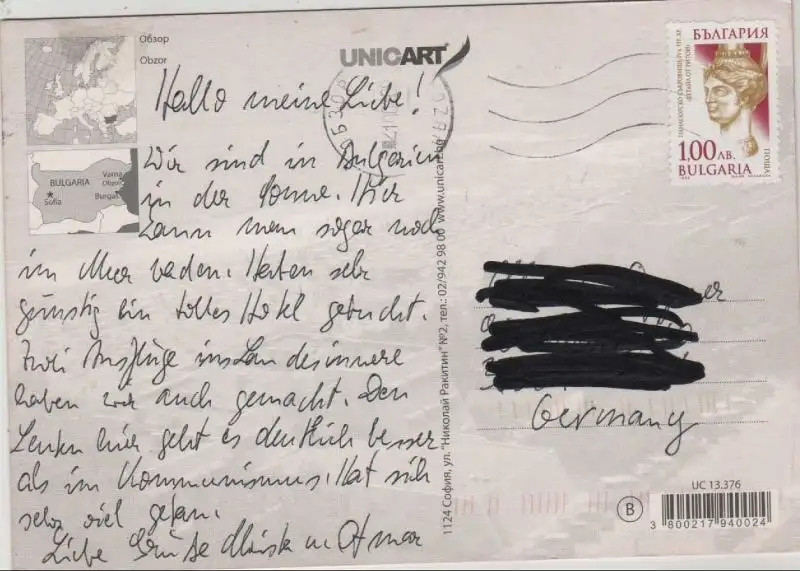 Обзор
Obzor
UNICART
BULGARIA
Varna
Obzor
Burgas
Sofia
Hallo meine Liebe!
Wir sind in Bulgarien
in der Sonne. Hier
kann man sogar noch
im Meer baden. Haben sehr
günstig ein tolles Hotel gebucht.
Zwei Ausflüge ins Landesinnere
haben wir auch gemacht. Den
Leuten hier geht es deutlich besser
als im Kommunismus. Hat sich
sehr viel getan.
Liebe Grüße u. Otmar
1124 София, ул. "Николай Ракитин" №2, тел.: 02/942 98 00 www.unicart.bg
БЪЛГАРИЯ
ПАНАГЮРСКО СЪКРОВИЩЕ
ДЕТАЙЛ ОТ РИТОН
ПОЩА
1,00 ЛВ.
BULGARIA
Germany
UC 13.376
B
3 800217 940024